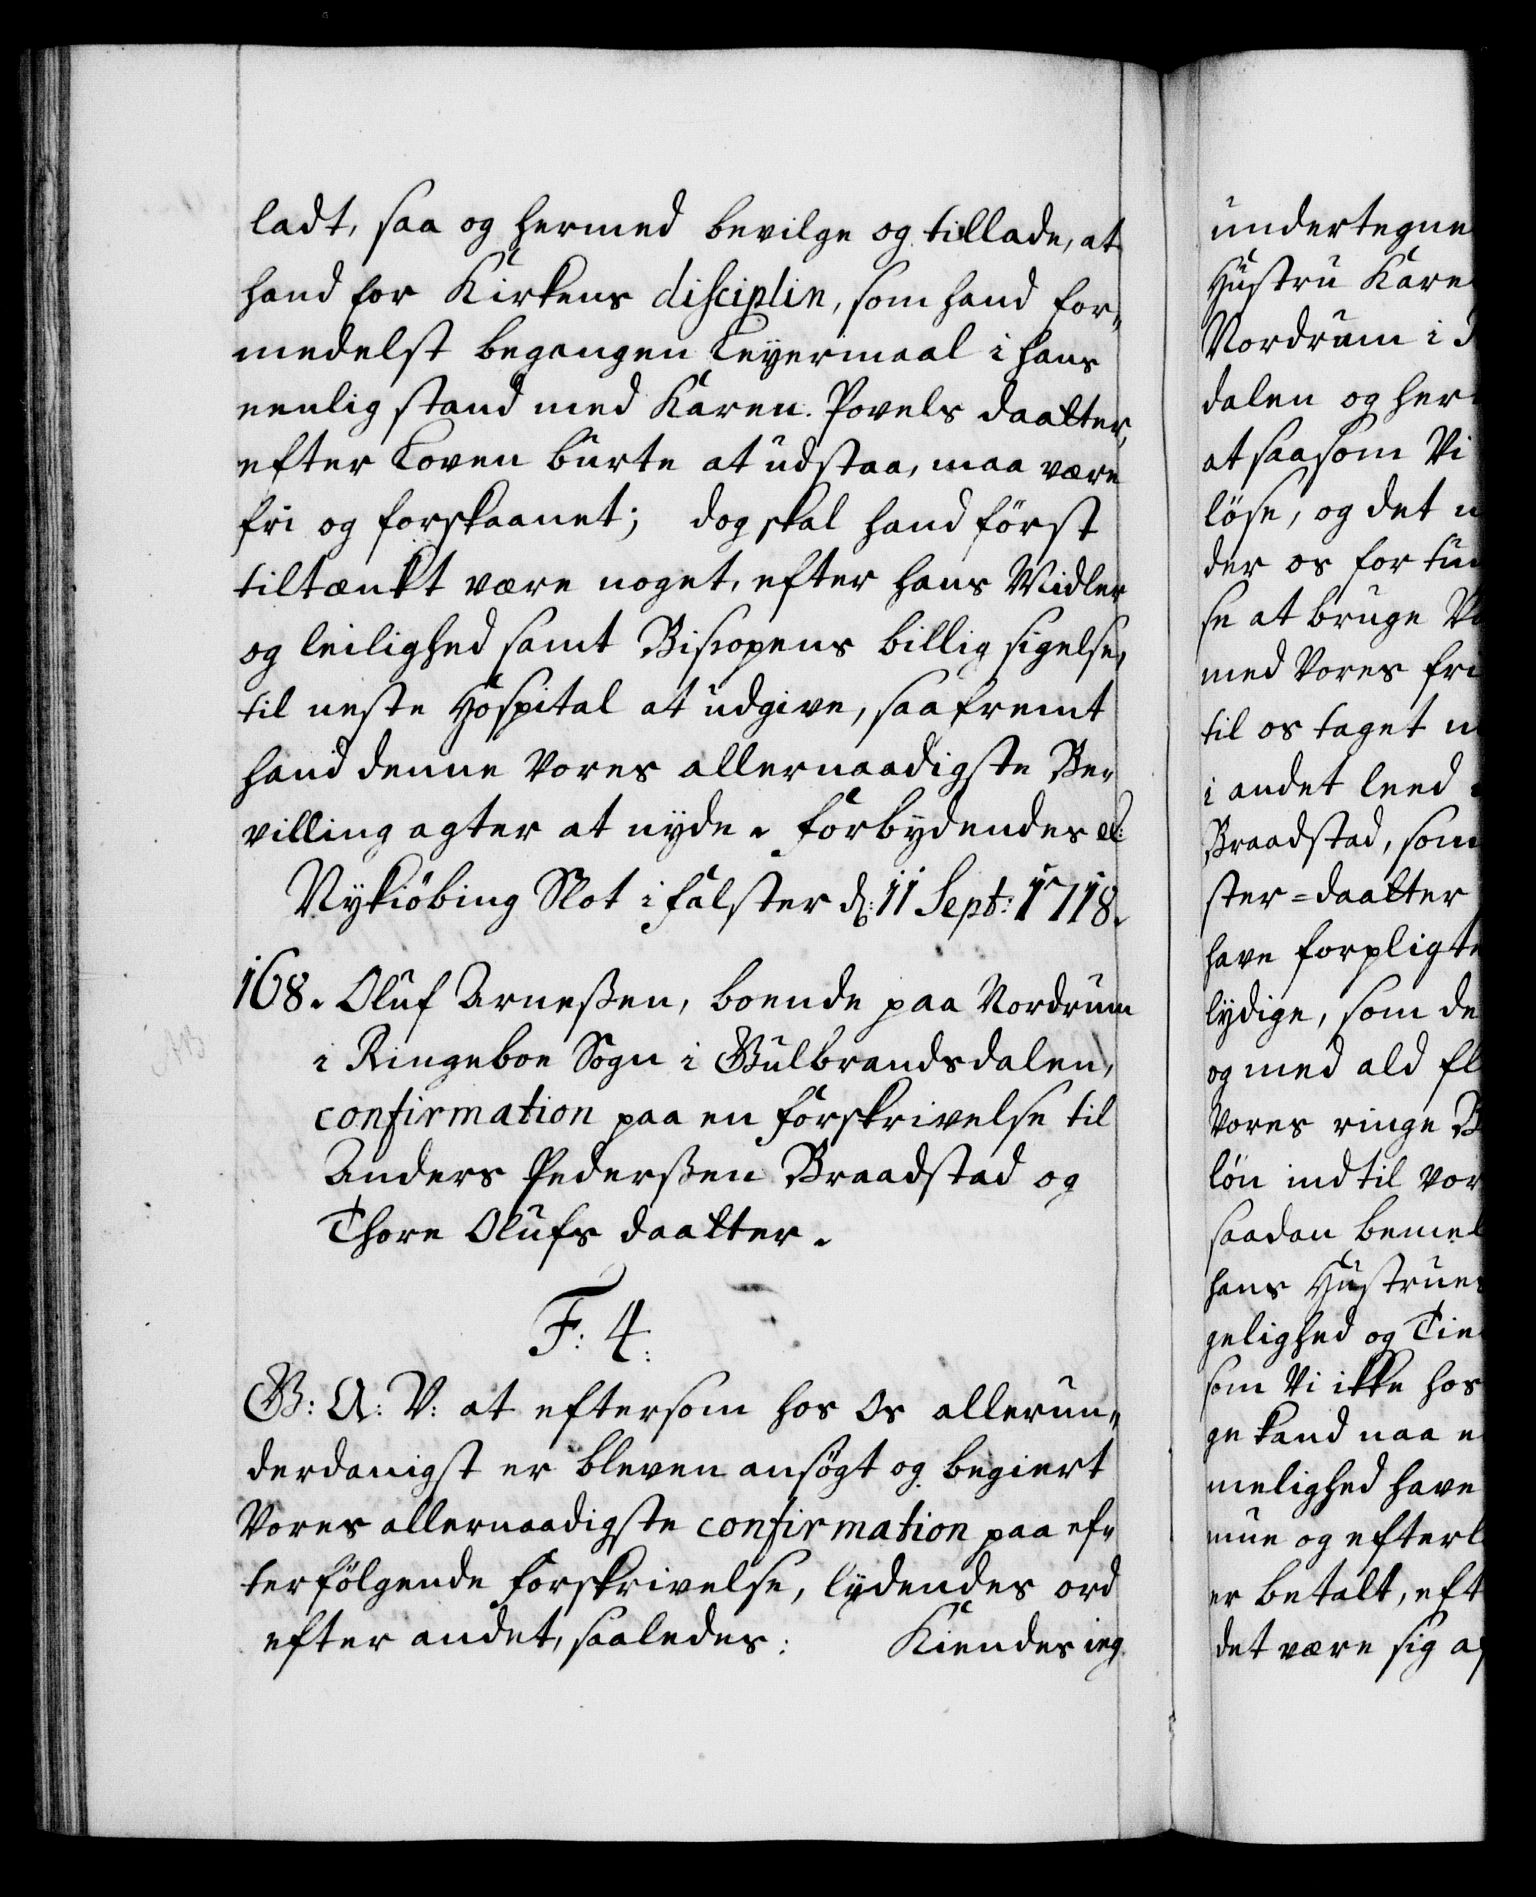 ladt, saa og hermed bevilge og tillade, at
hand for Kirkens disciplin, som hand for„
medelst begangen Leyermaal i hans
eenlig stand med Karen Povels daatter,
efter Loven burte at udstaa, maa være
fri og forskaanet; dog skal hand först
tiltænkt være noget, efter hans Midler
og leilighed samt Bispens billig sigelse,
til neste Hospital at udgive, saafremt
hand denne Vores allernaadigste Be„
villing agter at nyde. Forbydendes etc:
Nykiöbing Slot i Falster d: 11 Sept: 1718.
168. Oluf Arneßen, boende paa Nordrum
i Ringeboe Sogn i Gulbrandsdalen,
confirmation paa en forskrivelse til
Anders Pederßen Braadstad og
Thore Olufs daatter.
F: 4.
G: A: V: at eftersom hos Os allerun„
derdanigst er bleven ansögt og begiert
Vores allernaadigste confirmation paa ef„
terfölgende forskrivelse, lydendes ord
efter andet, saaledes: Kiendes ieg
undertegne
Hustru Kare
Nordrum i
dalen og her
at saasom Vi
löse, og det
der os for
se at bruge
med Vores
til os taget
i andet leed
Braadstad, som
ster=daatter
have forpligte
lydige, som de
og med ald fl
Vores ringe B
lön indtil vor
saadan bemel
hans Hustrues
gelighed og Tie
som Vi ikke hos
ge kand naa
melighed have
mue og efterl
er betalt, eft
det være sig